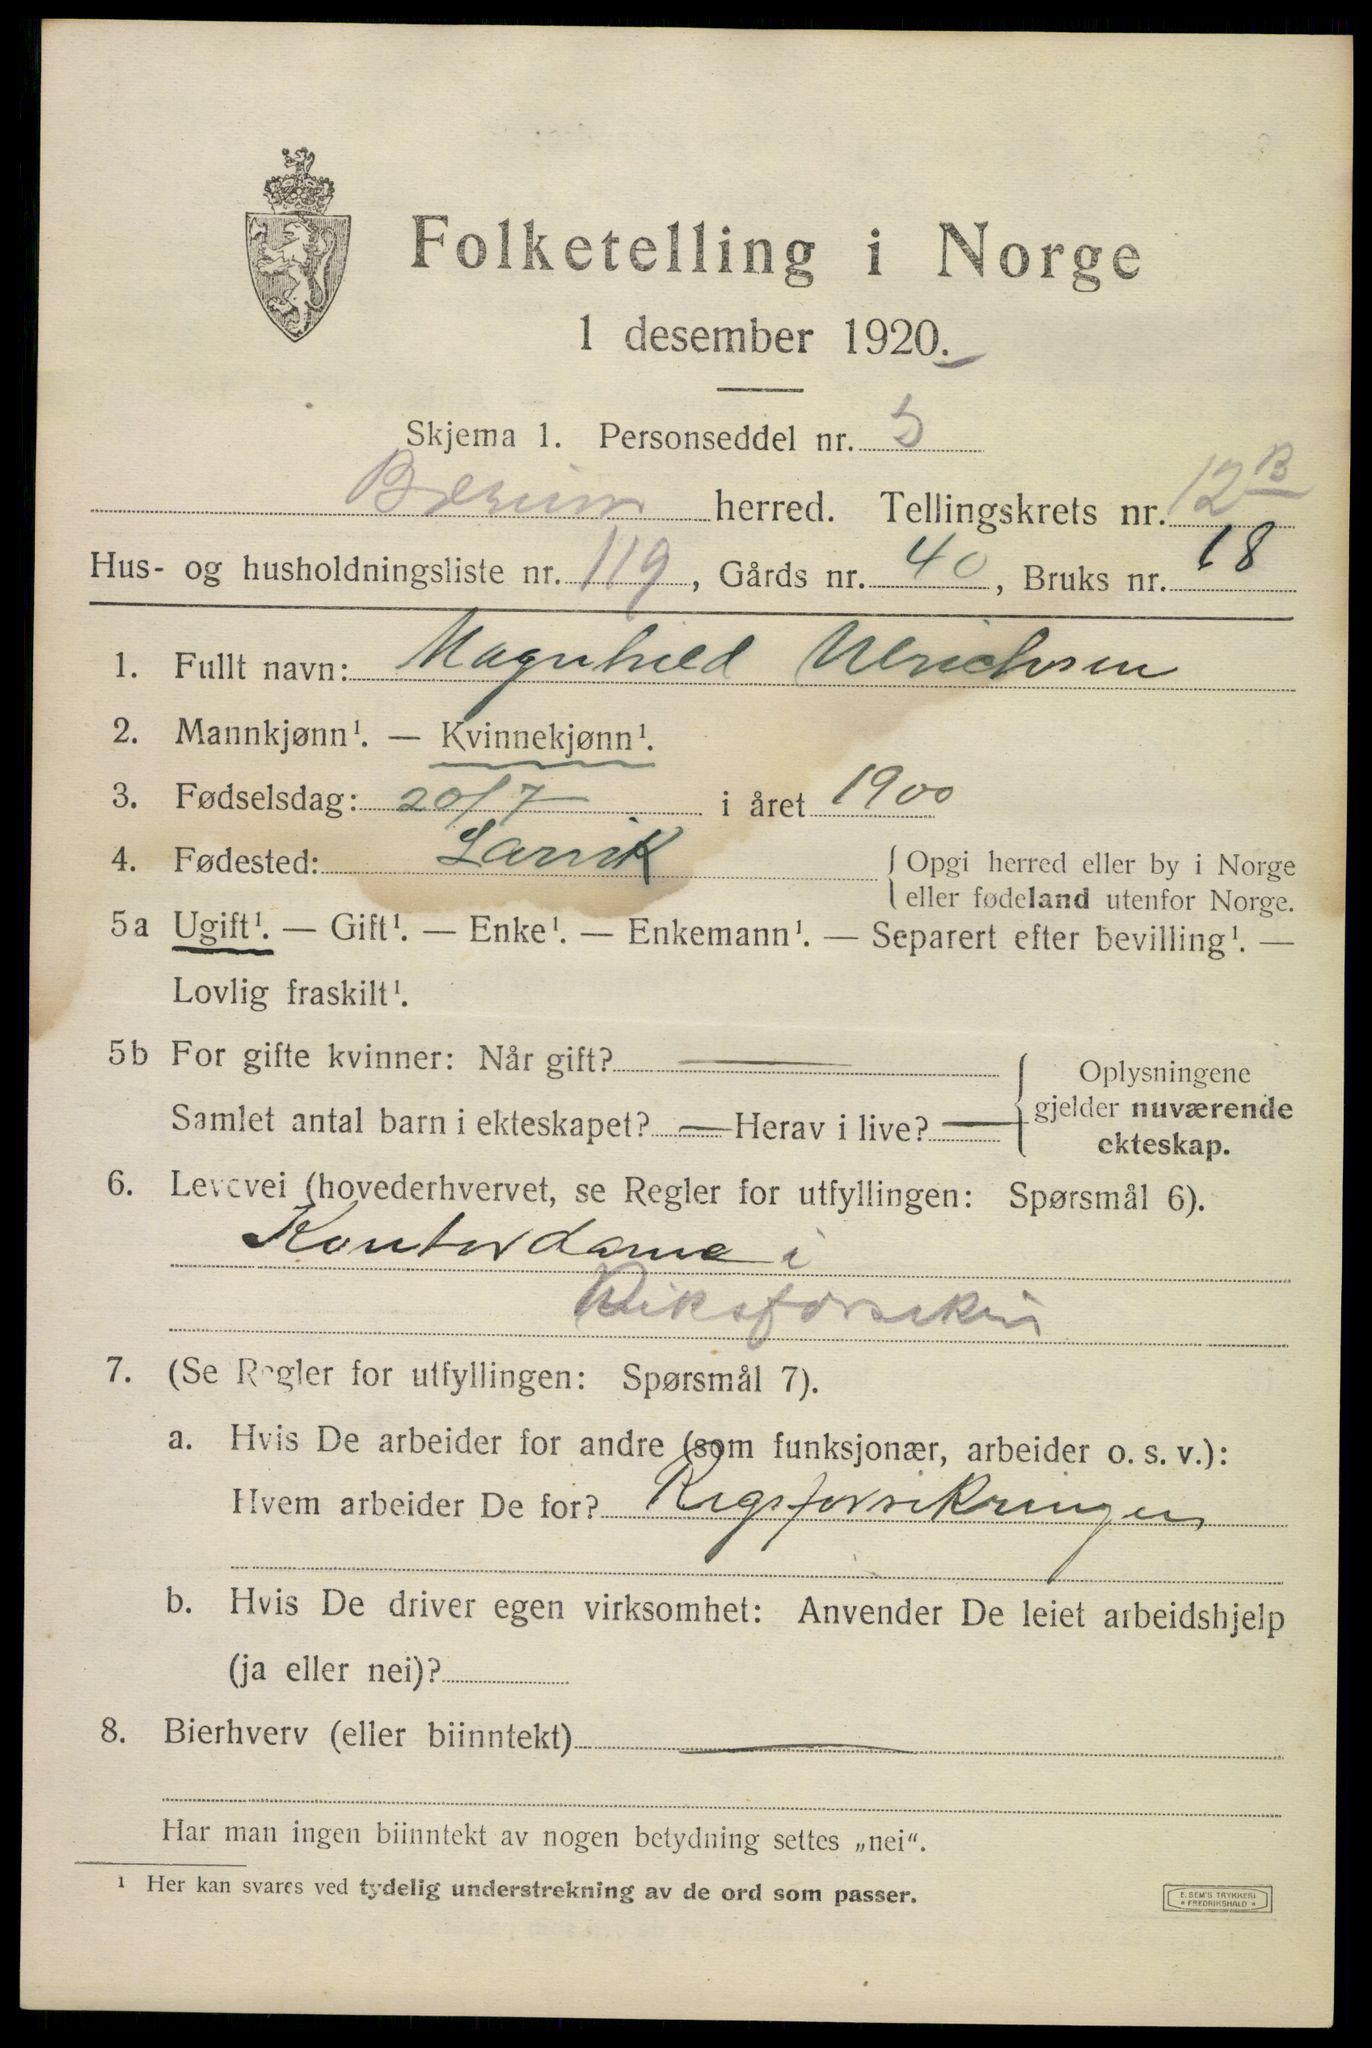 Folketelling i Norge
1 desember 1920.
Skjema 1. Personseddel nr. 5
Bærum herred. Tellingskrets nr. 12 B
Hus- og husholdningsliste nr. 119, Gårds nr. 40, Bruks nr. 18
1. Fullt navn: Magnhild Ulrichsen
2. Mannkjønn¹. — Kvinnekjønn¹.
3. Fødselsdag: 20/7 i året 1900
4. Fødested: Larvik Opgi herred eller by i Norge
eller fødeland utenfor Norge.
5a Ugift¹. — Gift¹. — Enke¹. — Enkemann¹. — Separert efter bevilling¹. —
Lovlig fraskilt¹.
5b For gifte kvinner: Når gift? —
Samlet antal barn i ekteskapet? — Herav i live? —
Oplysningene
gjelder nuværende
ekteskap.
6. Levevei (hovederhvervet, se Regler for utfyllingen: Spørsmål 6).
Kontordame i
Riksforsikrin
7. (Se Regler for utfyllingen: Spørsmål 7).
a. Hvis De arbeider for andre (som funksjonær, arbeider o. s. v.):
Hvem arbeider De for? Rigsforsikringen
b. Hvis De driver egen virksomhet: Anvender De leiet arbeidshjelp
(ja eller nei)?
8. Bierhverv (eller biinntekt) —
Har man ingen biinntekt av nogen betydning settes „nei“.
¹ Her kan svares ved tydelig understrekning av de ord som passer.
E. SEM'S TRYKKERI
• FREDRIKSHALD •